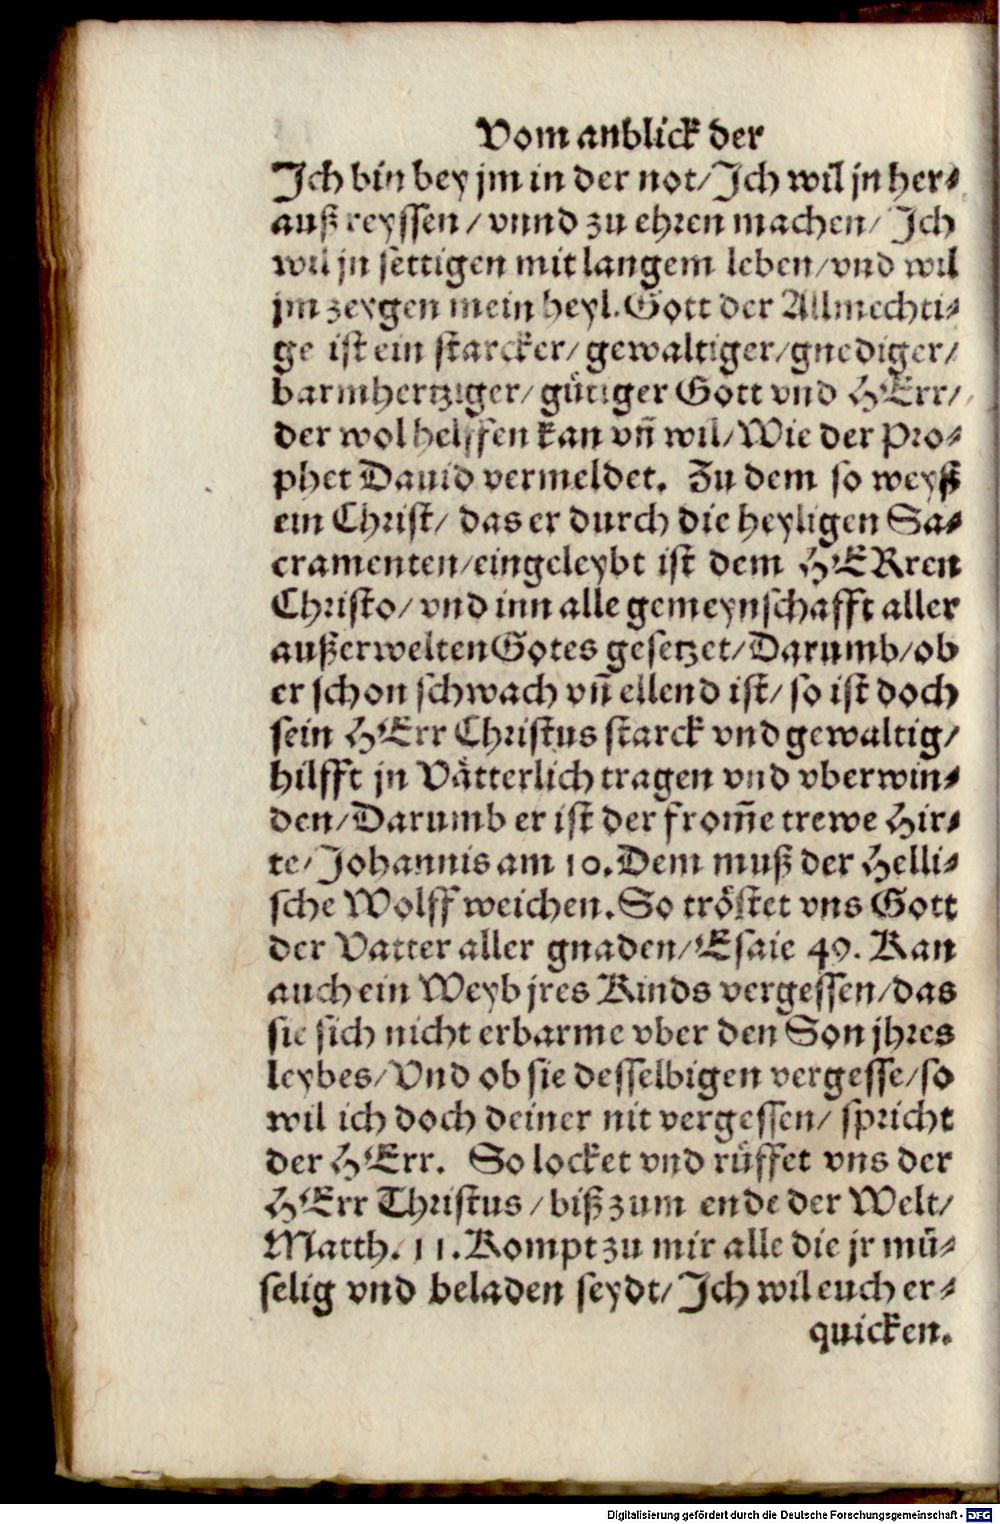 Vom anblick der
Ich bin bey jm in der not/ Ich wil jn her⸗
auß reyssen / vnnd zu ehren machen/ Ich
wil jn settigen mit langem leben/vnd wil
jm zeygen mein heyl. Gott der Allmechti⸗
ge ist ein starcker/ gewaltiger/gnediger/
barmhertziger/ gütiger Gott vnd HErr/
der wol helffen kan vñ wil/ Wie der Pro⸗
phet Dauid vermeldet. Zu dem so weyß
ein Christ/ das er durch die heyligen Sa⸗
cramenten/eingeleybt ist dem HERren
Christo/ vnd inn alle gemeynschafft aller
außerwelten Gotes gesetzet/Darumb/ob
er schon schwach vñ ellend ist/ so ist doch
sein HErr Christus starck vnd gewaltig/
hilfft jn Vätterlich tragen vnd vberwin⸗
den/Darumb er ist der from̃e trewe Hir⸗
te/Johannis am 10. Dem muß der Helli⸗
sche Wolff weichen. So tröstet vns Gott
der Vatter aller gnaden/Esaie 49. Kan
auch ein Weyb jres Kinds vergessen/das
sie sich nicht erbarme vber den Son jhres
leybes/Vnd ob sie desselbigen vergesse/so
wil ich doch deiner nit vergessen/ spricht
der HErr. So locket vnd rüffet vns der
HErr Christus /biß zum ende der Welt/
Matth. 11. Kompt zu mir alle die jr mü⸗
selig vnd beladen seydt/ Ich wil euch er⸗
quicken.
Digitalisierung gefördert durch die Deutsche Forschungsgemeinschaft - DFG